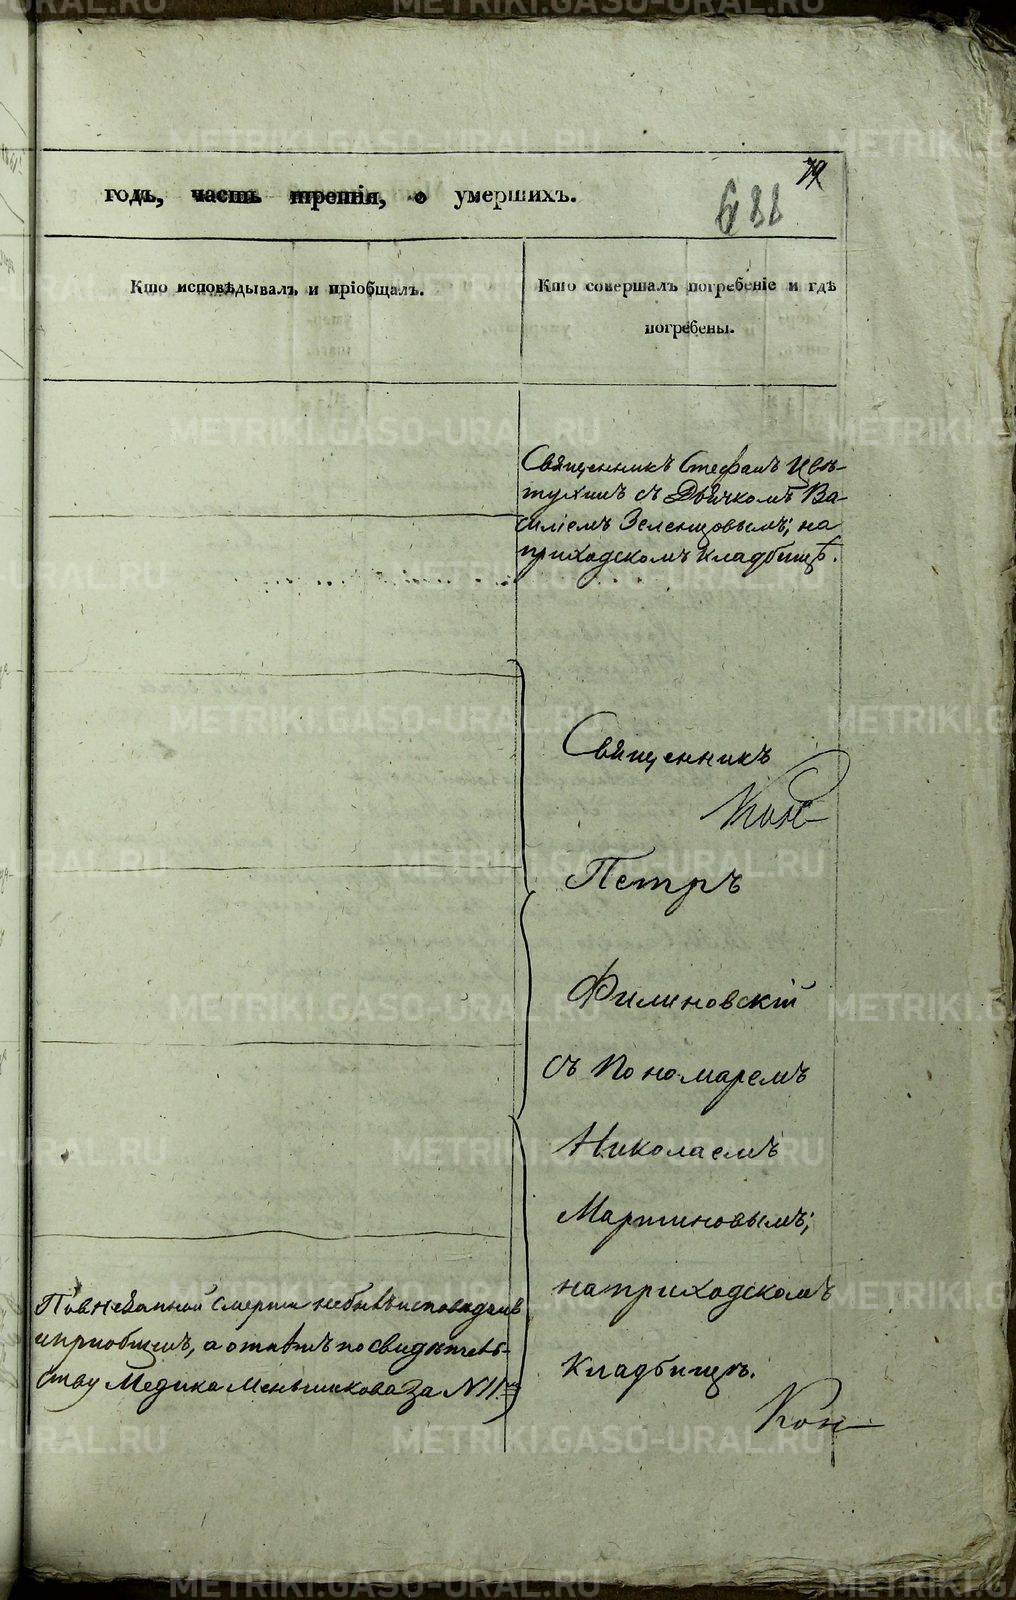 79
688
годъ, часть третія, о умершихъ.
Кто исповѣдывалъ и пріобщалъ.
Кто совершалъ погребеніе и гдѣ
погребены.
Священникъ Стефанъ Цвѣ-
тухинъ съ Дьячкомъ Ва-
силіемъ Зеленцовымъ; на
приходскомъ кладбищѣ.
Священникъ
Петръ
Филиновскій
съ Пономаремъ
Николаемъ
Мартиновымъ;
на приходскомъ
кладбищѣ.
По внезапной смерти небывъ исповѣдан
и приобщенъ, а отпѣтъ по свидѣтель-
ству Медика Меньшикова за N 11.
METRIKI.GASO-URAL.RU